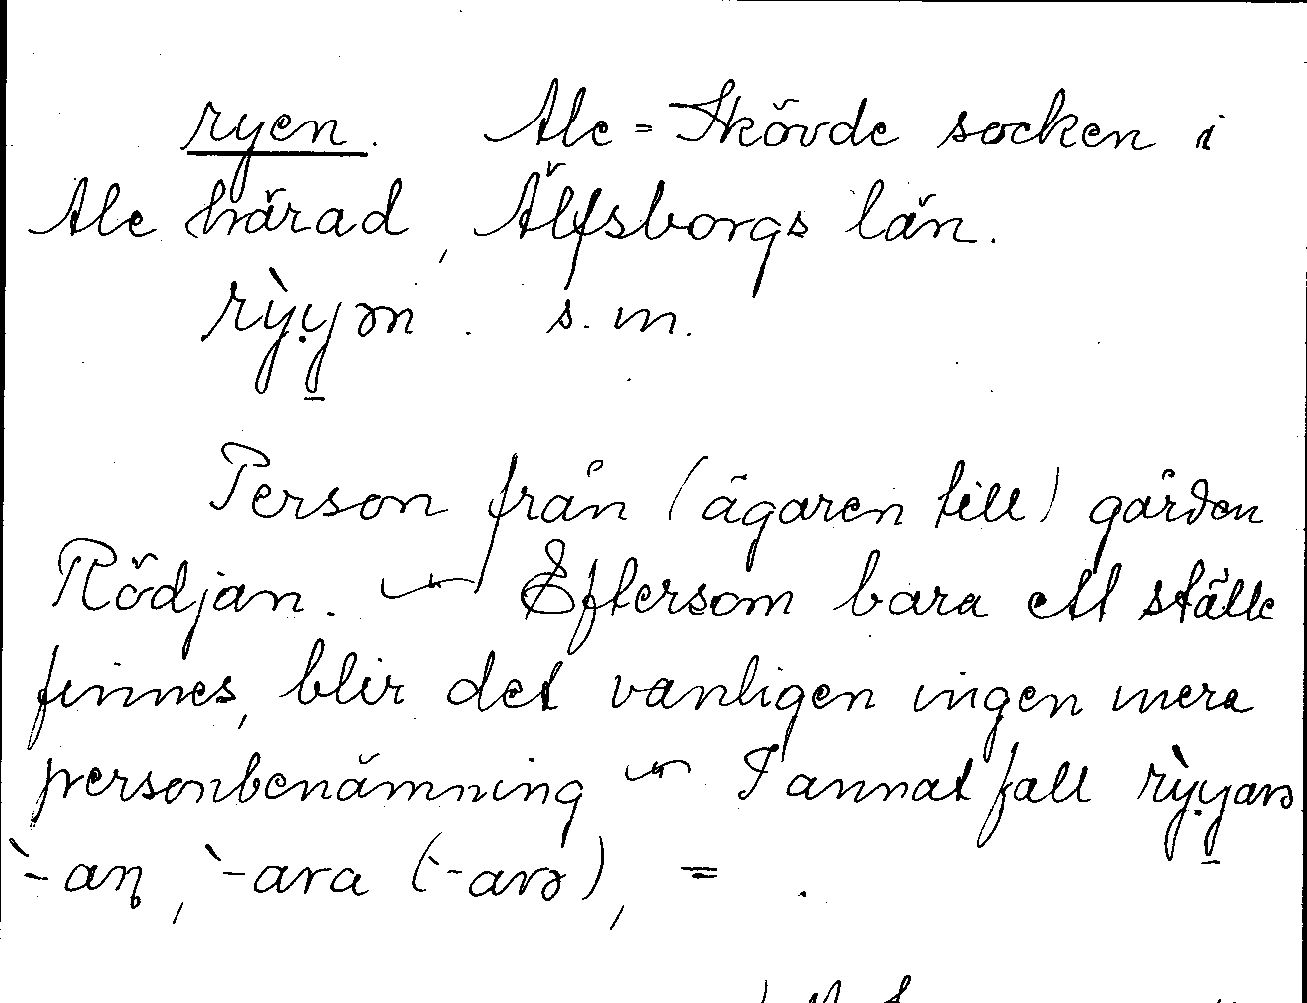 ryen. Ale-Skövde socken i
Ale härad, Älfsborgs län.
rỳy̱ən. s. m.
Person från (ägaren till) gården
Rödjan. ⁓ Eftersom bara ett ställe
finnes, blir det vanligen ingen mera
personbenämning ⁓ I annat fall rỳy̱arə
`-aṇ, `-ara (`-arə), =.